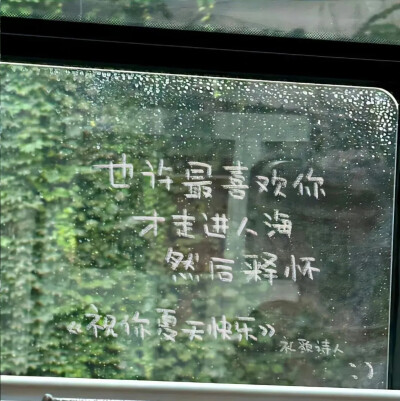 也许最喜欢你
才走进人海
然后释怀
《祝你夏天快乐》
礼颐诗人
:)